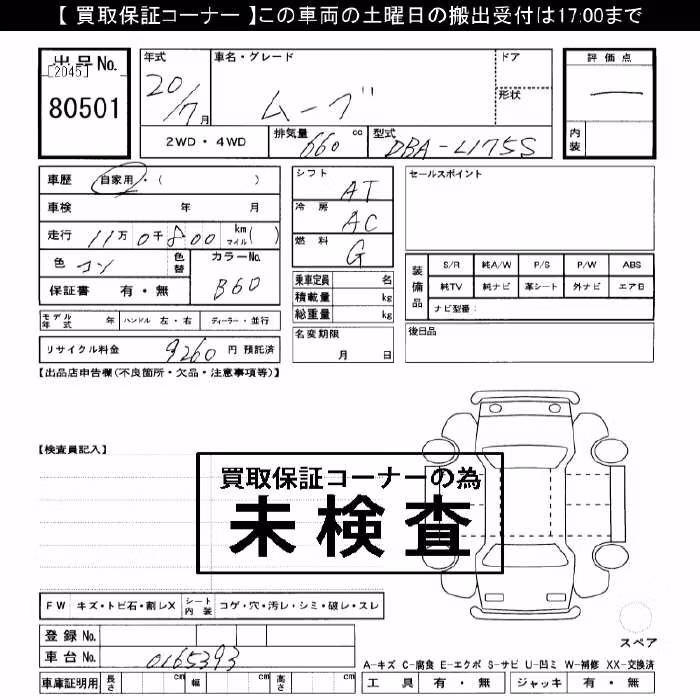 【 買取保証コーナー 】この車両の土曜日の搬出受付は17:00まで
出品No.
[2045]
80501
年式
20/7月
車名・グレード
ムーブ
ドア
形状
評価点
内装
2WD・4WD
排気量
660 cc
型式
DBA-L175S
車歴 自家用・( )
車検 年 月
走行 11万0千800 km マイル( )
色 コン
色替
カラーNo.
B60
保証書 有・無
シフト
AT
冷房
AC
燃料
G
セールスポイント
装備品
S/R 純A/W P/S P/W ABS
純TV 純ナビ 革シート 外ナビ エアB
ナビ型番:
乗車定員 名
積載量 kg
総重量 kg
モデル年式 年 ハンドル 左・右 ディーラー・並行
名変期限
月 日
後日品
リサイクル料金 9260 円 預託済
【出品店申告欄(不良箇所・欠品・注意事項等)】
【検査員記入】
買取保証コーナーの為
未検査
FW キズ・トビ石・割レX シート内装 コゲ・穴・汚レ・シミ・破レ・スレ
登録No.
車台No. 0165393
車庫証明用 長さ cm 幅 cm 高さ cm
スペア
A-キズ C-腐食 E-エクボ S-サビ U-凹ミ W-補修 XX-交換済
工具 有・無 ジャッキ 有・無